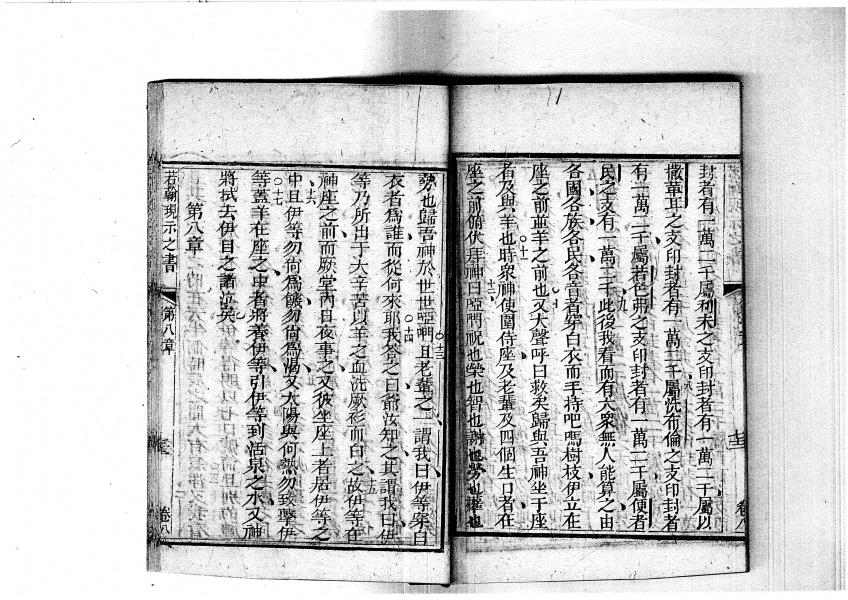 封者有一萬二千屬利未之支印封者有一萬二千屬以
撒華耳之支印封者有一萬二千屬洗布倫之支印封者
有一萬二千屬若色弗之支印封者有一萬二千屬便者
民之支有一萬二千此後我看而有大衆無人能算之由
各國各族各民各音者穿白衣而手持吧嗎樹枝伊立在
座之前並羊之前也又大聲呼曰救矣歸與吾神坐于座
者及與羊也時衆神使圍侍座及老輩及四個生口者在
座之前俯伏拜神曰啞們祝也榮也智也謝也勞也權也
勞也歸吾神於世世啞們且老輩之一謂我曰伊等穿白
衣者爲誰而從何來耶我答之曰爺汝知之其謂我曰伊
等乃所出于大辛苦以羊之血洗厥衫而白之故伊等在
神座之前而厥堂內日夜事之又彼坐座上者居伊等之
中且伊等勿尙爲饑勿尙爲渴又太陽與何熱勿致擊伊
等蓋羊在座之中者將養伊等引伊等到活泉之水又神
將拭去伊目之諸泣矣
第八章
若翰現示之書
第八章
卷八